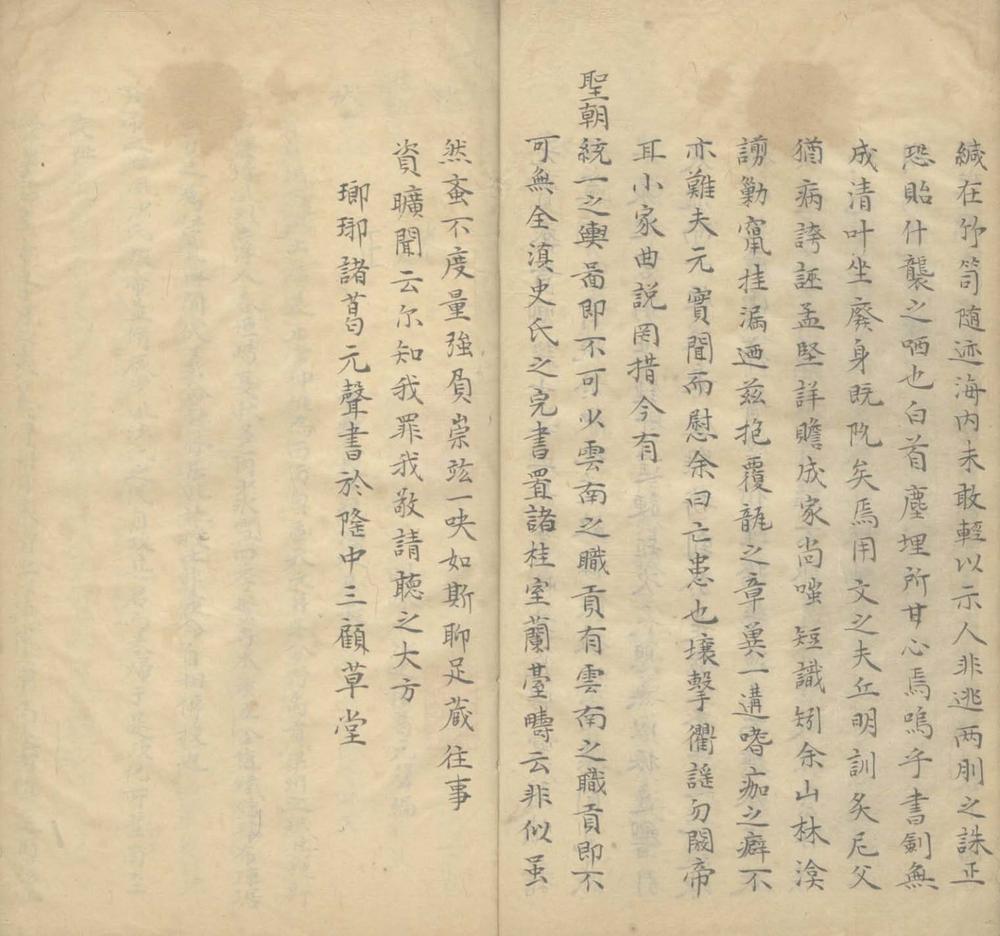 緘在竹笥随迹海内未敢輕以示人非逃两刖之誅正
恐貽什襲之哂也白首塵埋所甘心焉嗚乎書劍無
成清叶坐廢身既阬矣焉用文之夫丘明訓炙尼父
猶病誇誣孟堅詳贍成家尚嗤短識矧余山林湌
謭勦窜挂漏迺兹抱覆瓿之章兾一遘嗜痂之癖不
亦難夫元實聞而慰余曰亡患也壤擊衢謡勿閡帝
耳小家曲説罔措今有
聖朝統一之輿啚即不可少雲南之職貢有雲南之職貢即不
可無全滇史氏之完書置諸桂室蘭臺疇云非似虽
然蚉不度量強負崇兹一吷如斯聊足蕆往事
資曠聞云尔知我罪我敬請聽之大方
瑯琊諸葛元聲書於隆中三顧草堂